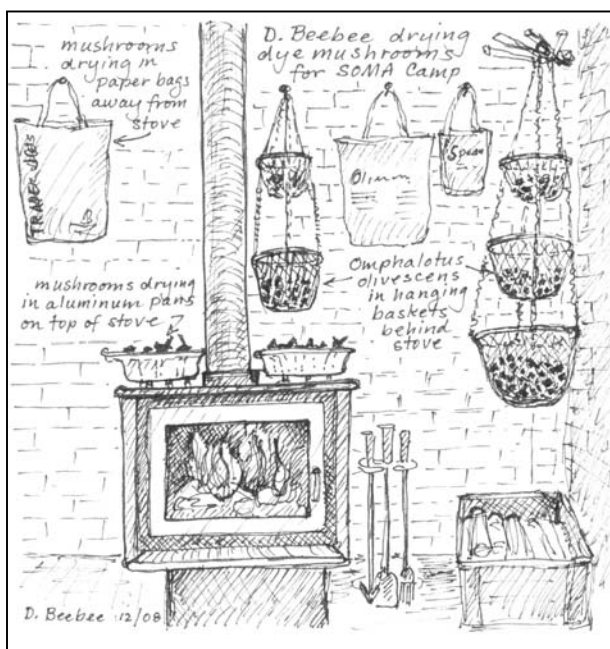 mushrooms
drying in
paper bags
away from
stove
D. Beebee drying
dye mushrooms
for SOMA Camp
TRADER JOE'S
mushrooms drying
in aluminum pans
on top of stove
Omphalotus
olivescens
in hanging
baskets
behind
stove
D. Beebee 12/08